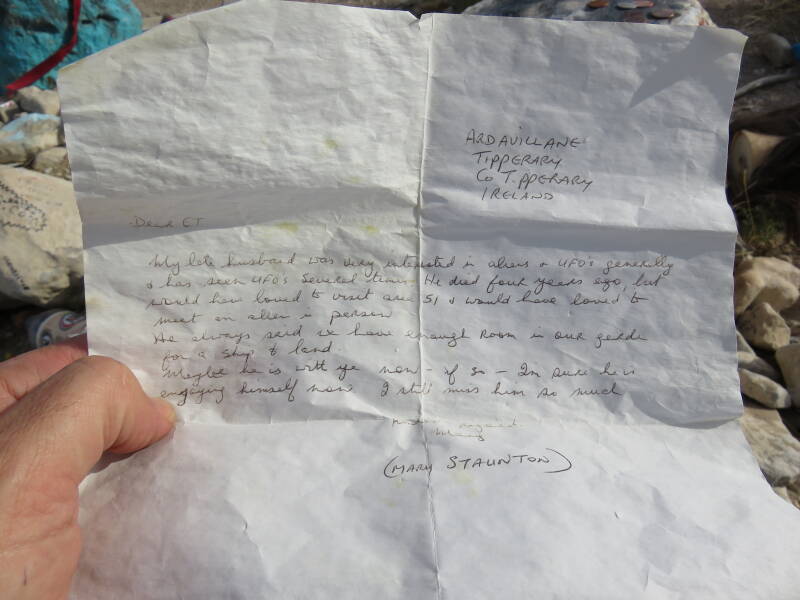 ARDAVILLANE
TIPPERARY
Co TIPPERARY
IRELAND
Dear ET
My late husband was very interested in aliens & UFO's generally
& has seen UFO's several times. He died four years ago, but
would have loved to visit area 51 & would have loved to
meet an alien in person
He always said we have enough room in our garden
for a ship to land.
Maybe he is with ye now - if so - Im sure he is
enjoying himself now I still miss him so much
regards
Mary
(MARY STAUNTON)